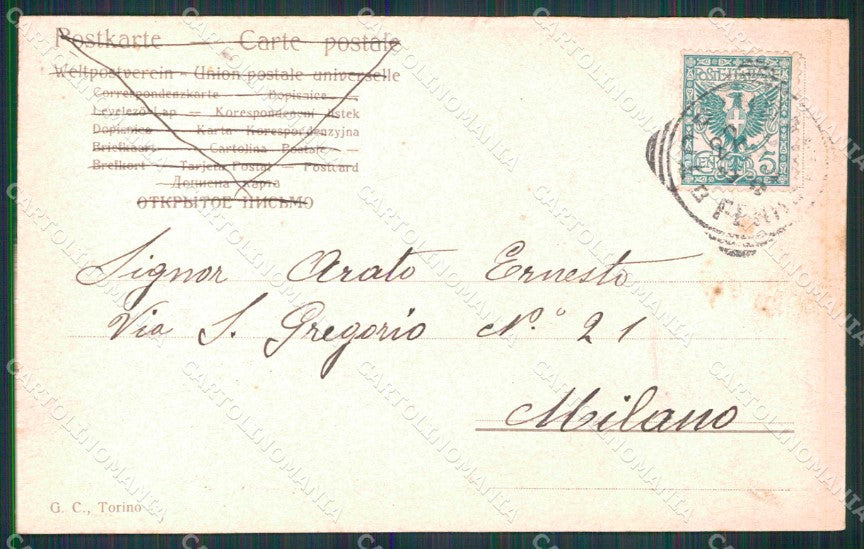 Postkarte — Carte postale
Weltpostverein - Union postale universelle
Correspondenzkarte — Dopisnice
Levelező-Lap — Korespondenční lístek
Dopisnica — Karta Korespondencyjna
Briefkaart — Cartolina Postale
Brefkort — Tarjeta Postal — Postcard
Дописна карта
ОТКРЫТОЕ ПИСЬМО
POSTE ITALIANE
5
Signor Arato Ernesto
Via S. Gregorio N.° 21
Milano
G. C., Torino
CARTOLINOMANIA